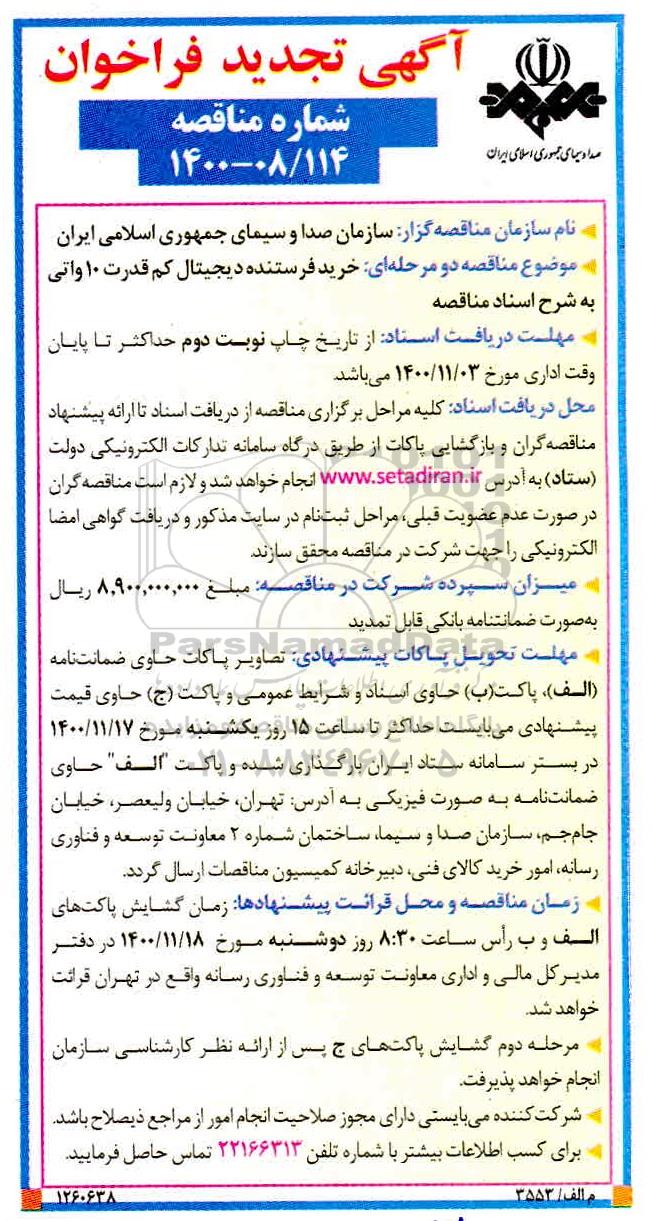 آگهی تجدید فراخوان
شماره مناقصه
۱۴۰۰-۰۸/۱۱۴
صدا و سیمای جمهوری اسلامی ایران
نام سازمان مناقصه‌گزار: سازمان صدا و سیمای جمهوری اسلامی ایران
موضوع مناقصه دو مرحله‌ای: خرید فرستنده دیجیتال کم قدرت ۱۰ واتی
به شرح اسناد مناقصه
مهلت دریافت اسناد: از تاریخ چاپ نوبت دوم حداکثر تا پایان
وقت اداری مورخ ۱۴۰۰/۱۱/۰۳ می‌باشد.
محل دریافت اسناد: کلیه مراحل برگزاری مناقصه از دریافت اسناد تا ارائه پیشنهاد
مناقصه‌گران و بازگشایی پاکات از طریق درگاه سامانه تدارکات الکترونیکی دولت
(ستاد) به آدرس www.setadiran.ir انجام خواهد شد و لازم است مناقصه‌گران
در صورت عدم عضویت قبلی، مراحل ثبت‌نام در سایت مذکور و دریافت گواهی امضا
الکترونیکی را جهت شرکت در مناقصه محقق سازند.
میزان سپرده شرکت در مناقصه: مبلغ ۸,۹۰۰,۰۰۰,۰۰۰ ریال
به‌صورت ضمانتنامه بانکی قابل تمدید
ParsNamadData
مهلت تحویل پاکات پیشنهادی: تصاویر پاکات حاوی ضمانت‌نامه
(الف)، پاکت(ب) حاوی اسناد و شرایط عمومی و پاکت (ج) حاوی قیمت
پیشنهادی می‌بایست حداکثر تا ساعت ۱۵ روز یکشنبه مورخ ۱۴۰۰/۱۱/۱۷
در بستر سامانه ستاد ایران بارگذاری شده و پاکت "الف" حاوی
۰۲۱-۸۸۳۴۹۶۷۰-۵
ضمانت‌نامه به صورت فیزیکی به آدرس: تهران، خیابان ولیعصر، خیابان
جام‌جم، سازمان صدا و سیما، ساختمان شماره ۲ معاونت توسعه و فناوری
رسانه، امور خرید کالای فنی، دبیرخانه کمیسیون مناقصات ارسال گردد.
زمان مناقصه و محل قرائت پیشنهادها: زمان گشایش پاکت‌های
الف و ب رأس ساعت ۸:۳۰ روز دوشنبه مورخ ۱۴۰۰/۱۱/۱۸ در دفتر
مدیرکل مالی و اداری معاونت توسعه و فناوری رسانه واقع در تهران قرائت
خواهد شد.
مرحله دوم گشایش پاکت‌های ج پس از ارائه نظر کارشناسی سازمان
انجام خواهد پذیرفت.
شرکت‌کننده می‌بایستی دارای مجوز صلاحیت انجام امور از مراجع ذیصلاح باشد.
برای کسب اطلاعات بیشتر با شماره تلفن ۲۲۱۶۶۳۱۳ تماس حاصل فرمایید.
م الف/ ۳۵۵۳
۱۲۶۰۶۳۸